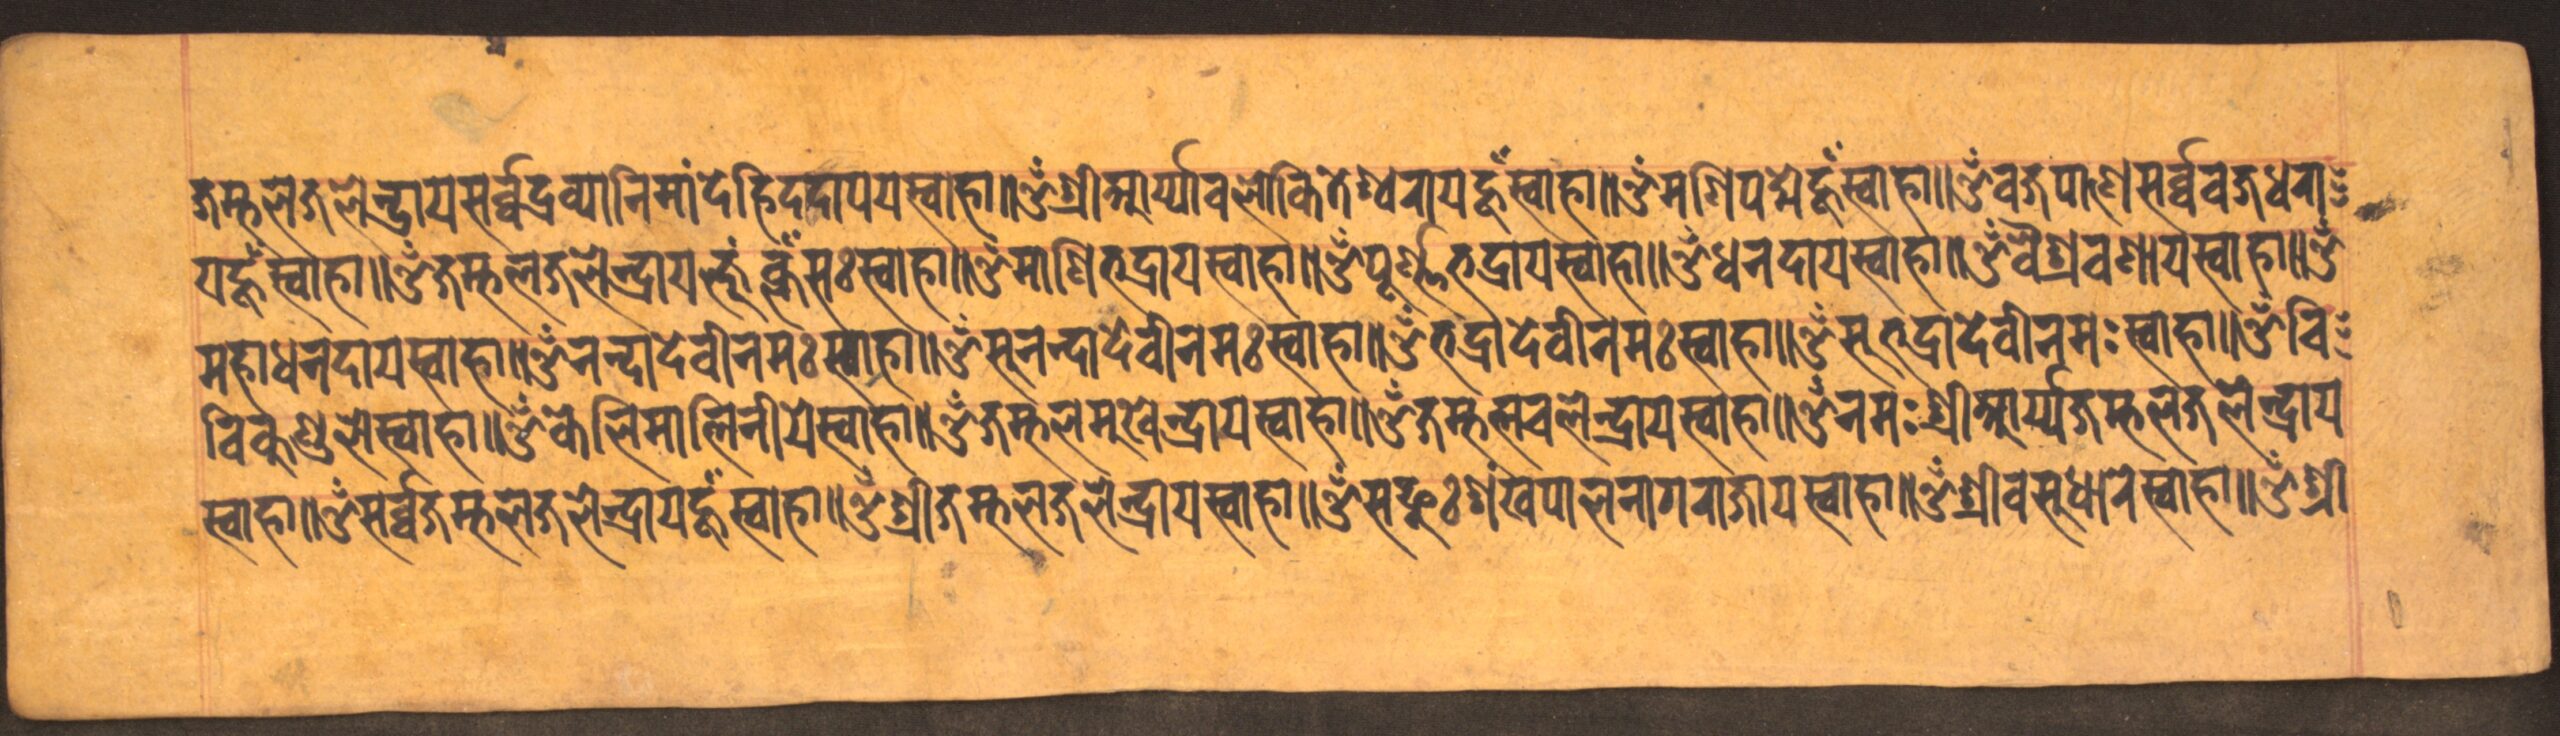 जम्भलजलेन्द्रायसर्व्वद्रव्यानिमांदेहिददापयस्वाहा॥ॐश्रीआर्य्यावलोकितेश्वरायहूँस्वाहा॥ॐमणिपद्मेहूँस्वाहा॥ॐवज्रपाणसर्व्ववज्रधरा
यहूँस्वाहा॥ॐजम्भलजलेन्द्राय सःस्वाहा॥ॐमाणिभद्रायस्वाहा॥ॐपूर्ण्णभद्रायस्वाहा॥ॐधनदायस्वाहा॥ॐवैश्रवणायस्वाहा॥ॐ
महाधनदायस्वाहा॥ॐनन्दादेवीनमःस्वाहा॥ॐसूनन्दादेवीनमःस्वाहा॥ॐभद्रादेवीनमःस्वाहा॥ॐसूभद्रादेवीनमःस्वाहा॥ॐवि
विकुण्डलेस्वाहा॥ॐकेलिमालिनीयेस्वाहा॥ॐजम्भलमुखेन्द्रायस्वाहा॥ॐ स्वाहा॥ॐनमःश्रीआर्य्यजम्भलजलेन्द्राय
स्वाहा॥ॐसर्व्वजम्भलजलेन्द्रायहूँस्वाहा॥ॐश्रीजम्भलजलेन्द्रायस्वाहा॥ॐ शंखपालनागराजायस्वाहा॥ॐश्रीवसूधारेस्वाहा॥ॐश्री